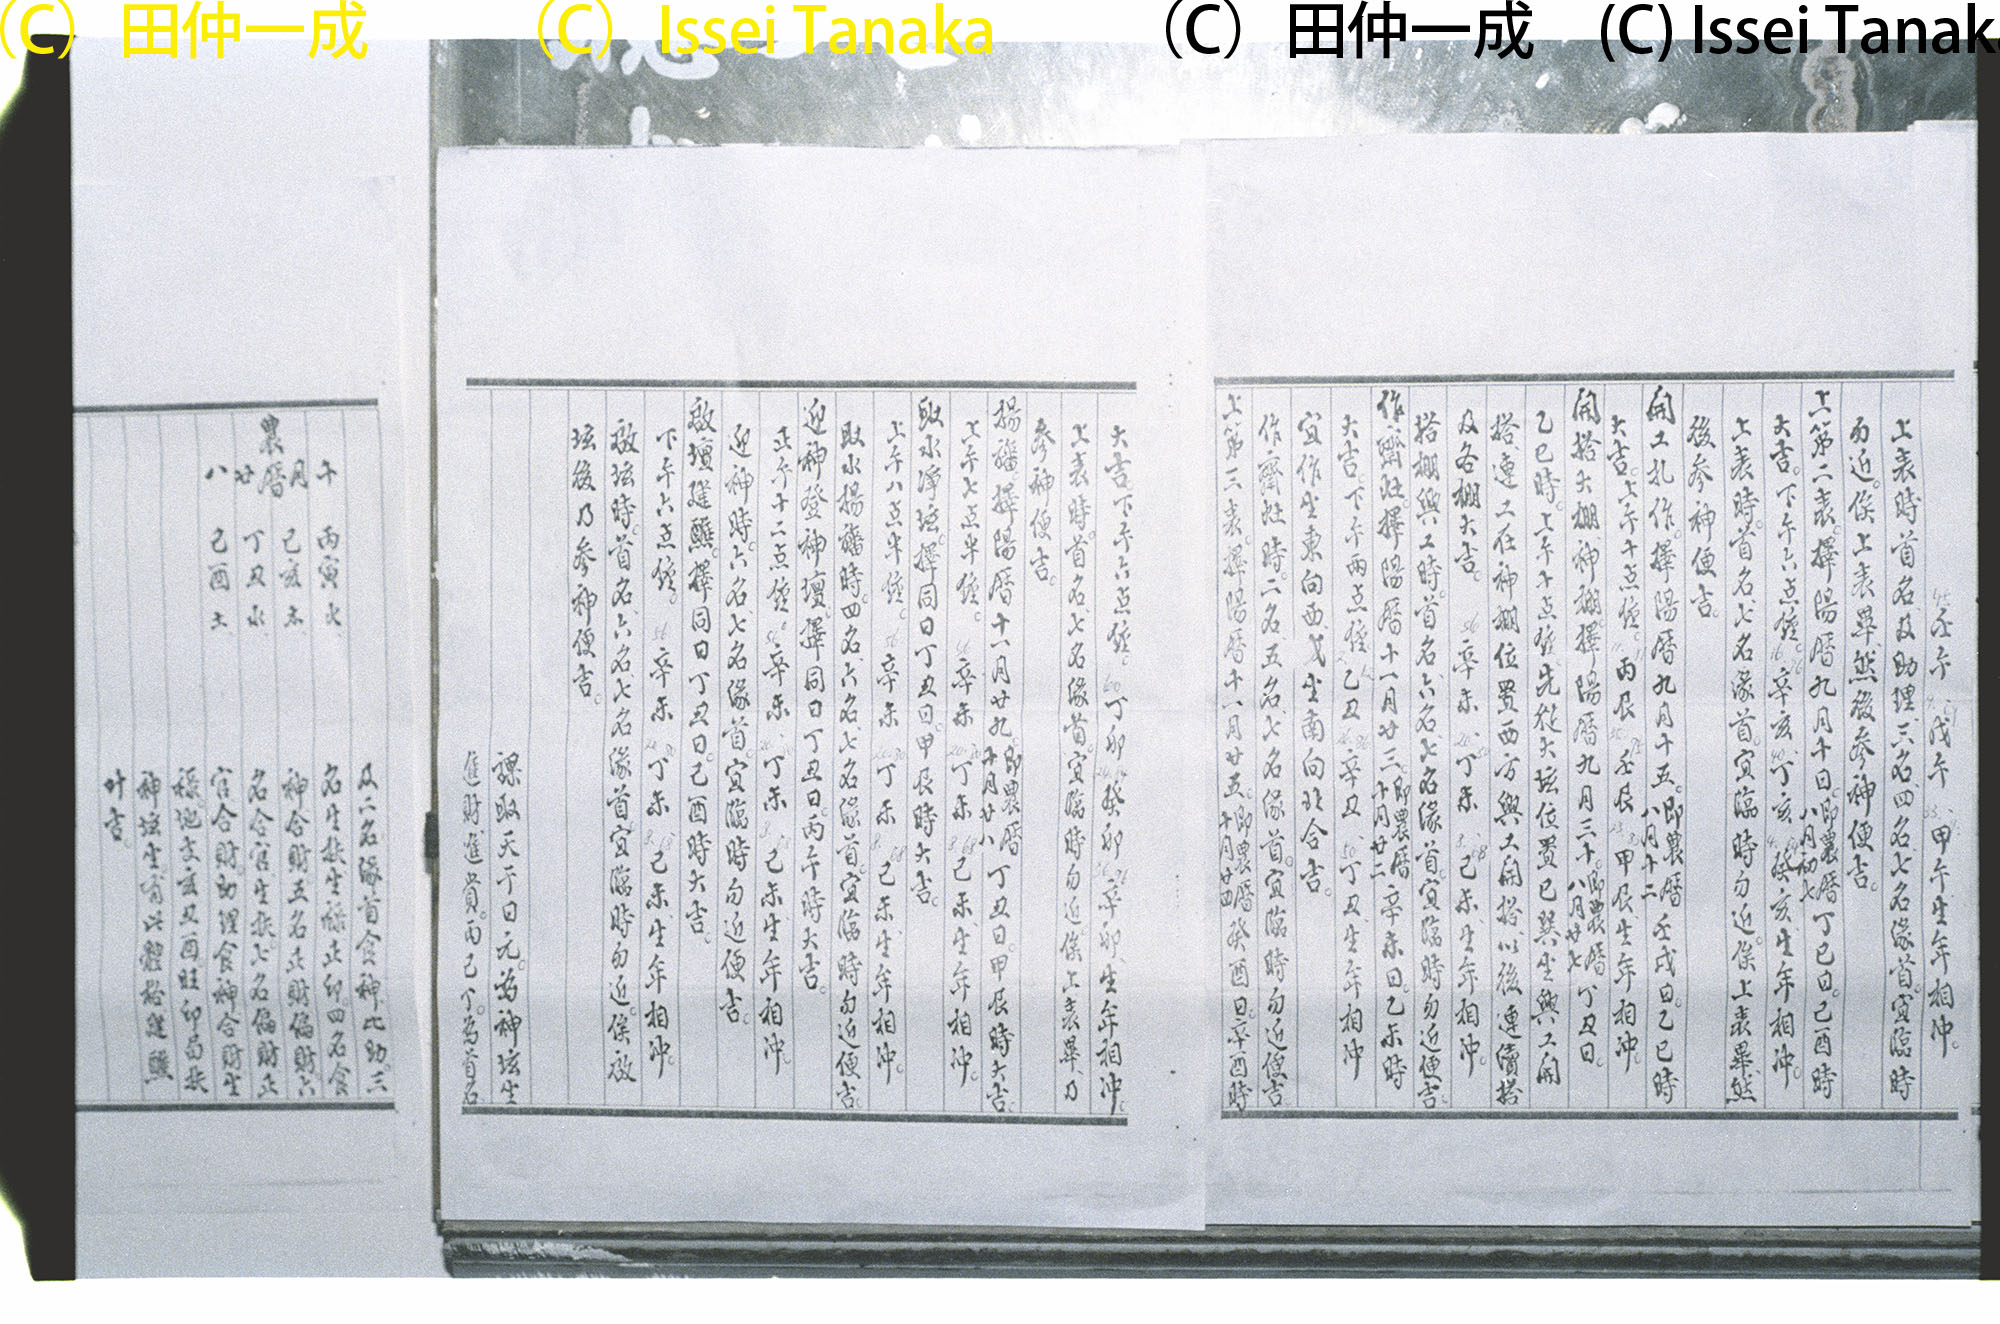 (C) 田仲一成 (C) Issei Tanaka (C) 田仲一成 (C) Issei Tanaka
壬午 戊午 甲午生年相沖。
上表時首名及助理、三名、四名、七名緣首。宜臨時
勿近。俟上表畢、然後參神便吉。
上第二表。擇陽曆九月十日。即農曆八月初七丁巳日。己酉時
大吉。下午六点鐘。辛亥 丁亥 癸亥、生年相沖。
上表時。首名、七名緣首。宜臨時勿近。俟上表畢、然
後參神便吉。
開工扎作。擇陽曆九月十五。即農曆八月十二壬戌日。乙巳時
大吉。上午十点鐘。丙辰 壬辰 甲辰、生年相沖。
開搭大棚、神棚。擇陽曆九月三十。即農曆八月廿七丁丑日。
乙巳時。上午十点鐘。先從大坛位置巳巽坐興工開
搭、連工在神棚位置西方興工開搭、以後連續搭
及各棚大吉。 56辛未、20丁未 8己未、生年相沖。
搭棚興工時。首名、六名、七名緣首。宜臨時勿近便吉。
作齋灶。擇陽曆十一月廿三。即農曆十月廿二辛未日。乙未時
大吉。下午兩点鐘。乙丑 辛丑 丁丑、生年相沖
作齋灶時。二名、五名、七名緣首。宜臨時勿近便吉
宜作坐東向西、或坐南向北合吉。
上第三表。擇陽曆十一月廿五。即農曆十月廿四癸酉日。辛酉時
大吉下午六点鐘。60丁卯 癸卯 辛卯、生年相沖。
上表時。首名、七名緣首。宜臨時勿近。俟上表畢、乃
參神便吉。
揚旛。擇陽曆十一月廿九。即農曆十月廿八丁丑日。甲辰時大吉。
上午七点半鐘。56辛未 20丁未 8己未、生年相沖。
取水淨坛。擇同日丁丑日。甲辰時大吉。
上午八点半鐘。56辛未 20丁未 8己未、生年相沖。
取水揚旛時。四名、六名、七名緣首。宜臨時勿近便吉。
迎神登神壇。擇同日丁丑日。丙午時大吉。
正午十二点鐘。56辛未、20丁未 8己未、生年相沖。
迎神時。六名、七名緣首。宜臨時勿近便吉。
啟壇建醮。擇同日丁丑日。己酉時大吉。
下午六点鐘。56辛未 20丁未 8己未、生年相沖。
啟坛時。首名、六名、七名緣首。宜臨時勿近。俟啟
坛後乃參神便吉。
課取天干日元。為神坛生
進財進貴。丙己丁。為首名
及二名緣首食神比助。三
午 丙寅火 名生扶生旺正印。四名食
月 己亥木 神合財。五名正財偏財六
農曆廿 丁丑水 名合官生扶七名偏財正
八 己酉土 官合財。助理食神合財生
祿。地支亥丑酉旺印局扶
神坛坐有以體於建醮
叶吉。